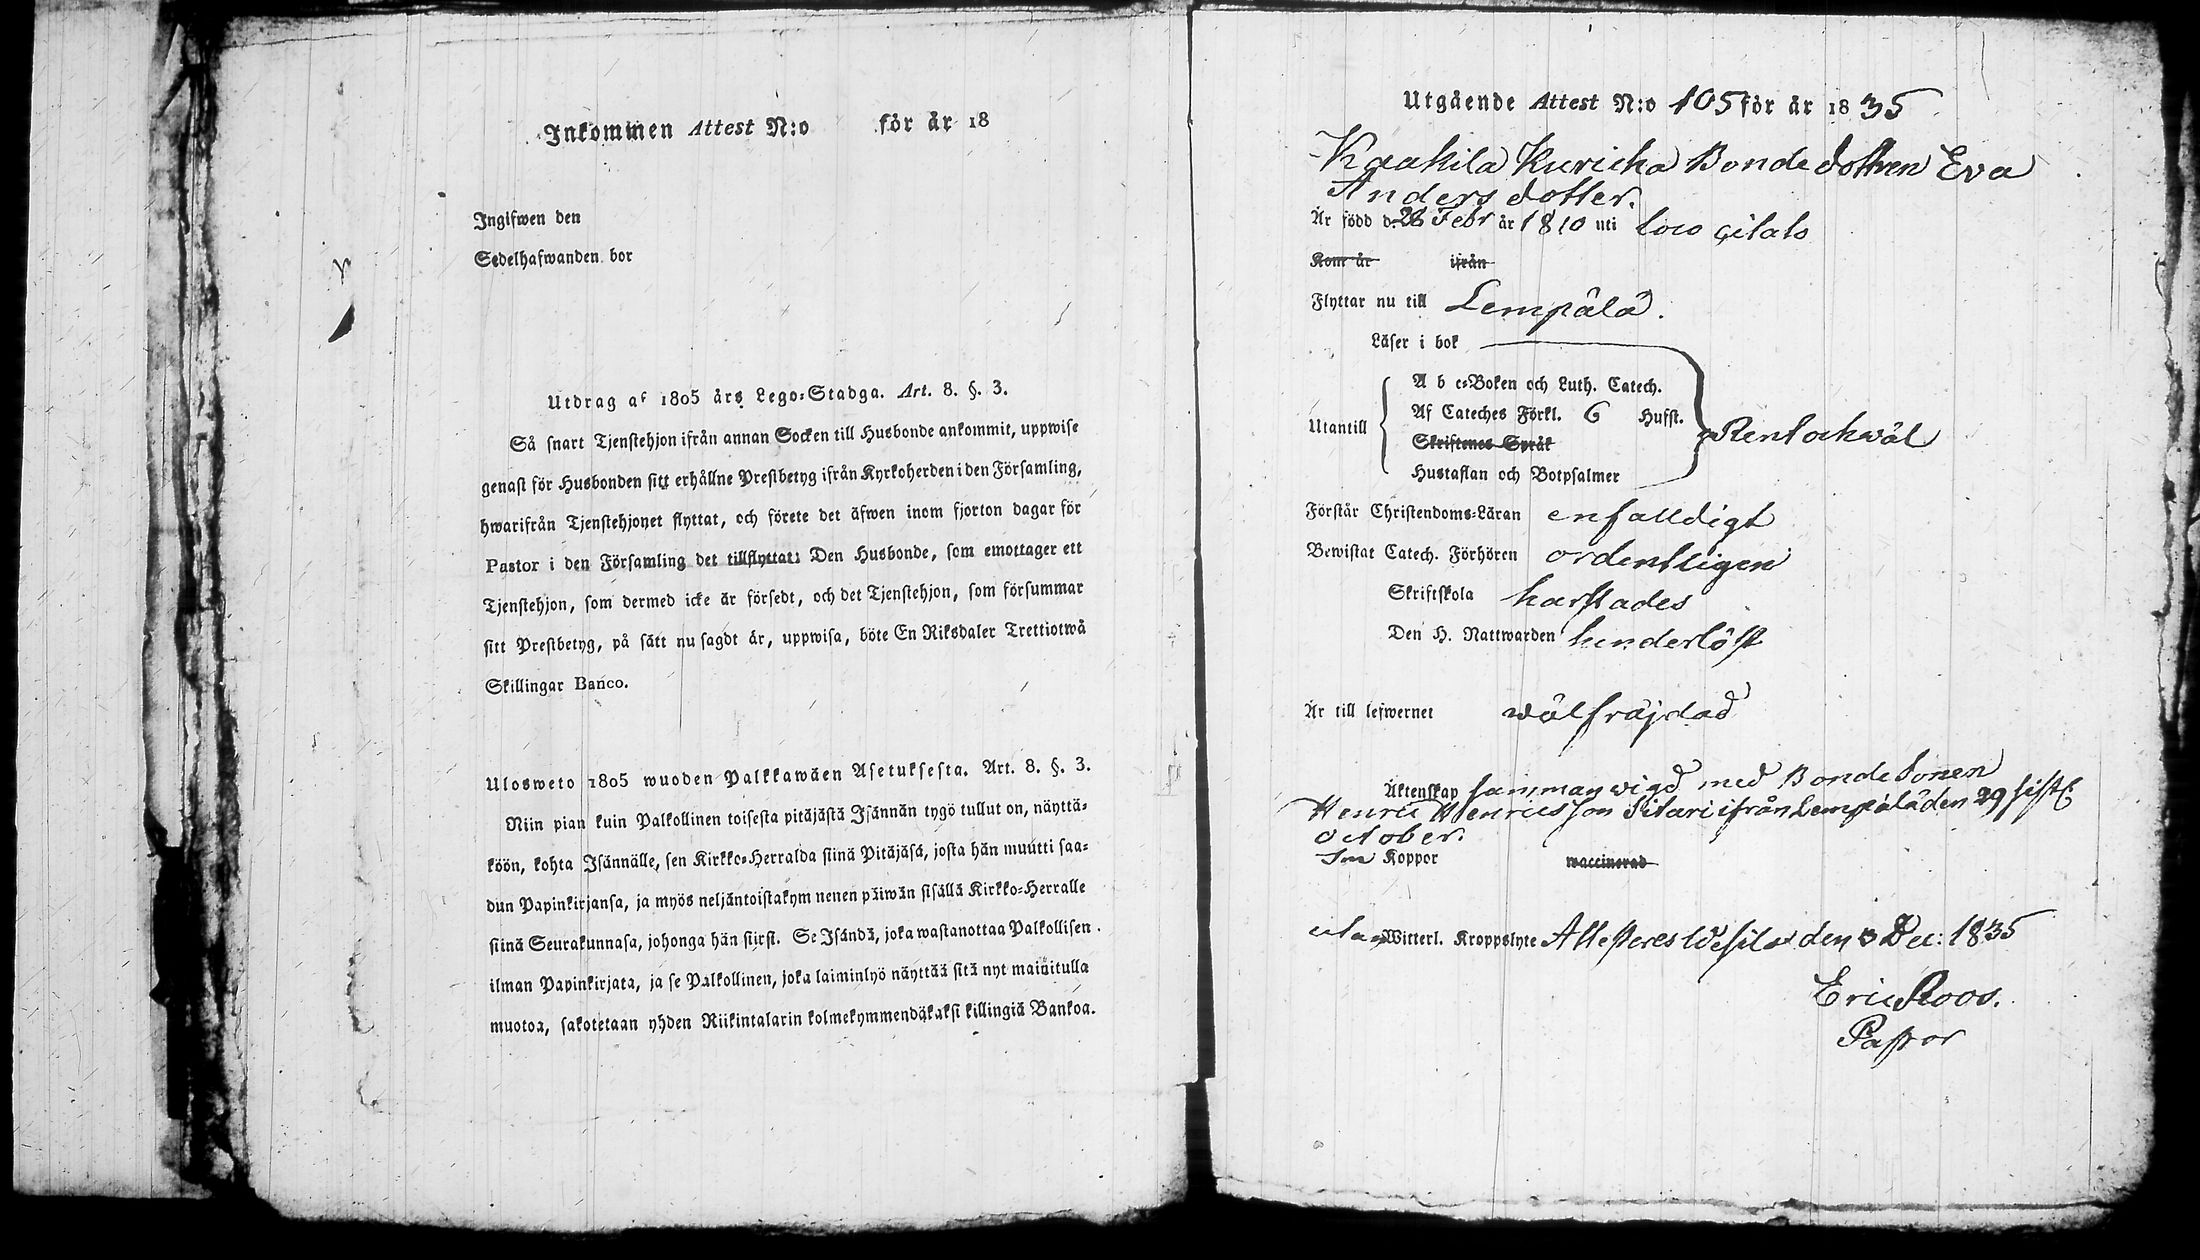 Inkommen Attest N:o för år 18
Ingifwen den
Sedelhafwanden bor
Utdrag af 1805 års Lego-Stadga. Art. 8. §. 3.
Så snart Tjenstehjon ifrån annan Socken till Husbonde ankommit, uppwise
genast för Husbonden sitt erhållne Prestbetyg ifrån Kyrkoherden i den Församling,
hwarifrån Tjenstehjonet flyttat, och förete det äfwen inom fjorton dagar för
Pastor i den Församling det tillflyttat. Den Husbonde, som emottager ett
Tjenstehjon, som dermed icke är försedt, och det Tjenstehjon, som försummar
sitt Prestbetyg, på sätt nu sagdt är, uppwisa, böte En Riksdaler Trettiotwå
Skillingar Banco.
Ulosweto 1805 wuoden Palkkawäen Asetuksesta. Art. 8. §. 3.
Niin pian kuin Palkollinen toisesta pitäjästä Isännän tygö tullut on, näyttä-
köön, kohta Isännälle, sen Kirkko-Herralda siinä Pitäjäsä, josta hän muutti saa-
dun Papinkirjansa, ja myös neljäntoistakymnenen päiwän sisällä Kirkko-Herralle
siinä Seurakunnasa, johonga hän siirsi. Se Isändä, joka wastanottaa Palkollisen
ilman Papinkirjata, ja se Palkollinen, joka laiminlyö näyttää sitä nyt mainitulla
muotoa, sakotetaan yhden Riikintalarin kolmekymmendäkaksi killingiä Bankoa.
Utgående Attest N:o 105 för år 1835
Kaakila Kuricka Bondedottren Eva
Anders dotter.
Är född d. 28 Febr år 1810 uti loco citato
Kom år ifrån
Flyttar nu till Lempälä.
Läser i bok
A b c-Boken och Luth. Catech.
Af Cateches Förkl. 6 Hufst.
Utantill Rent och wäl
Skriftenes Språk
Hustaflan och Botpsalmer
Förstår Christendoms-Läran enfalldigt
Bewistat Catech. Förhören ordentligen
Skriftskola harstades
Den H. Nattwarden hinderlöst
Är till lefwernet wälfräjdad
Äktenskap samman wigd med Bonde Sonen
Henric Henrics son Sitari ifrån Lempälä den 29 sistl.
October.
Koppor waccinerad
utan Witterl. Kroppslyte Attesteres Wesilax den 3 Dec: 1835
Eric Roos.
Pastor